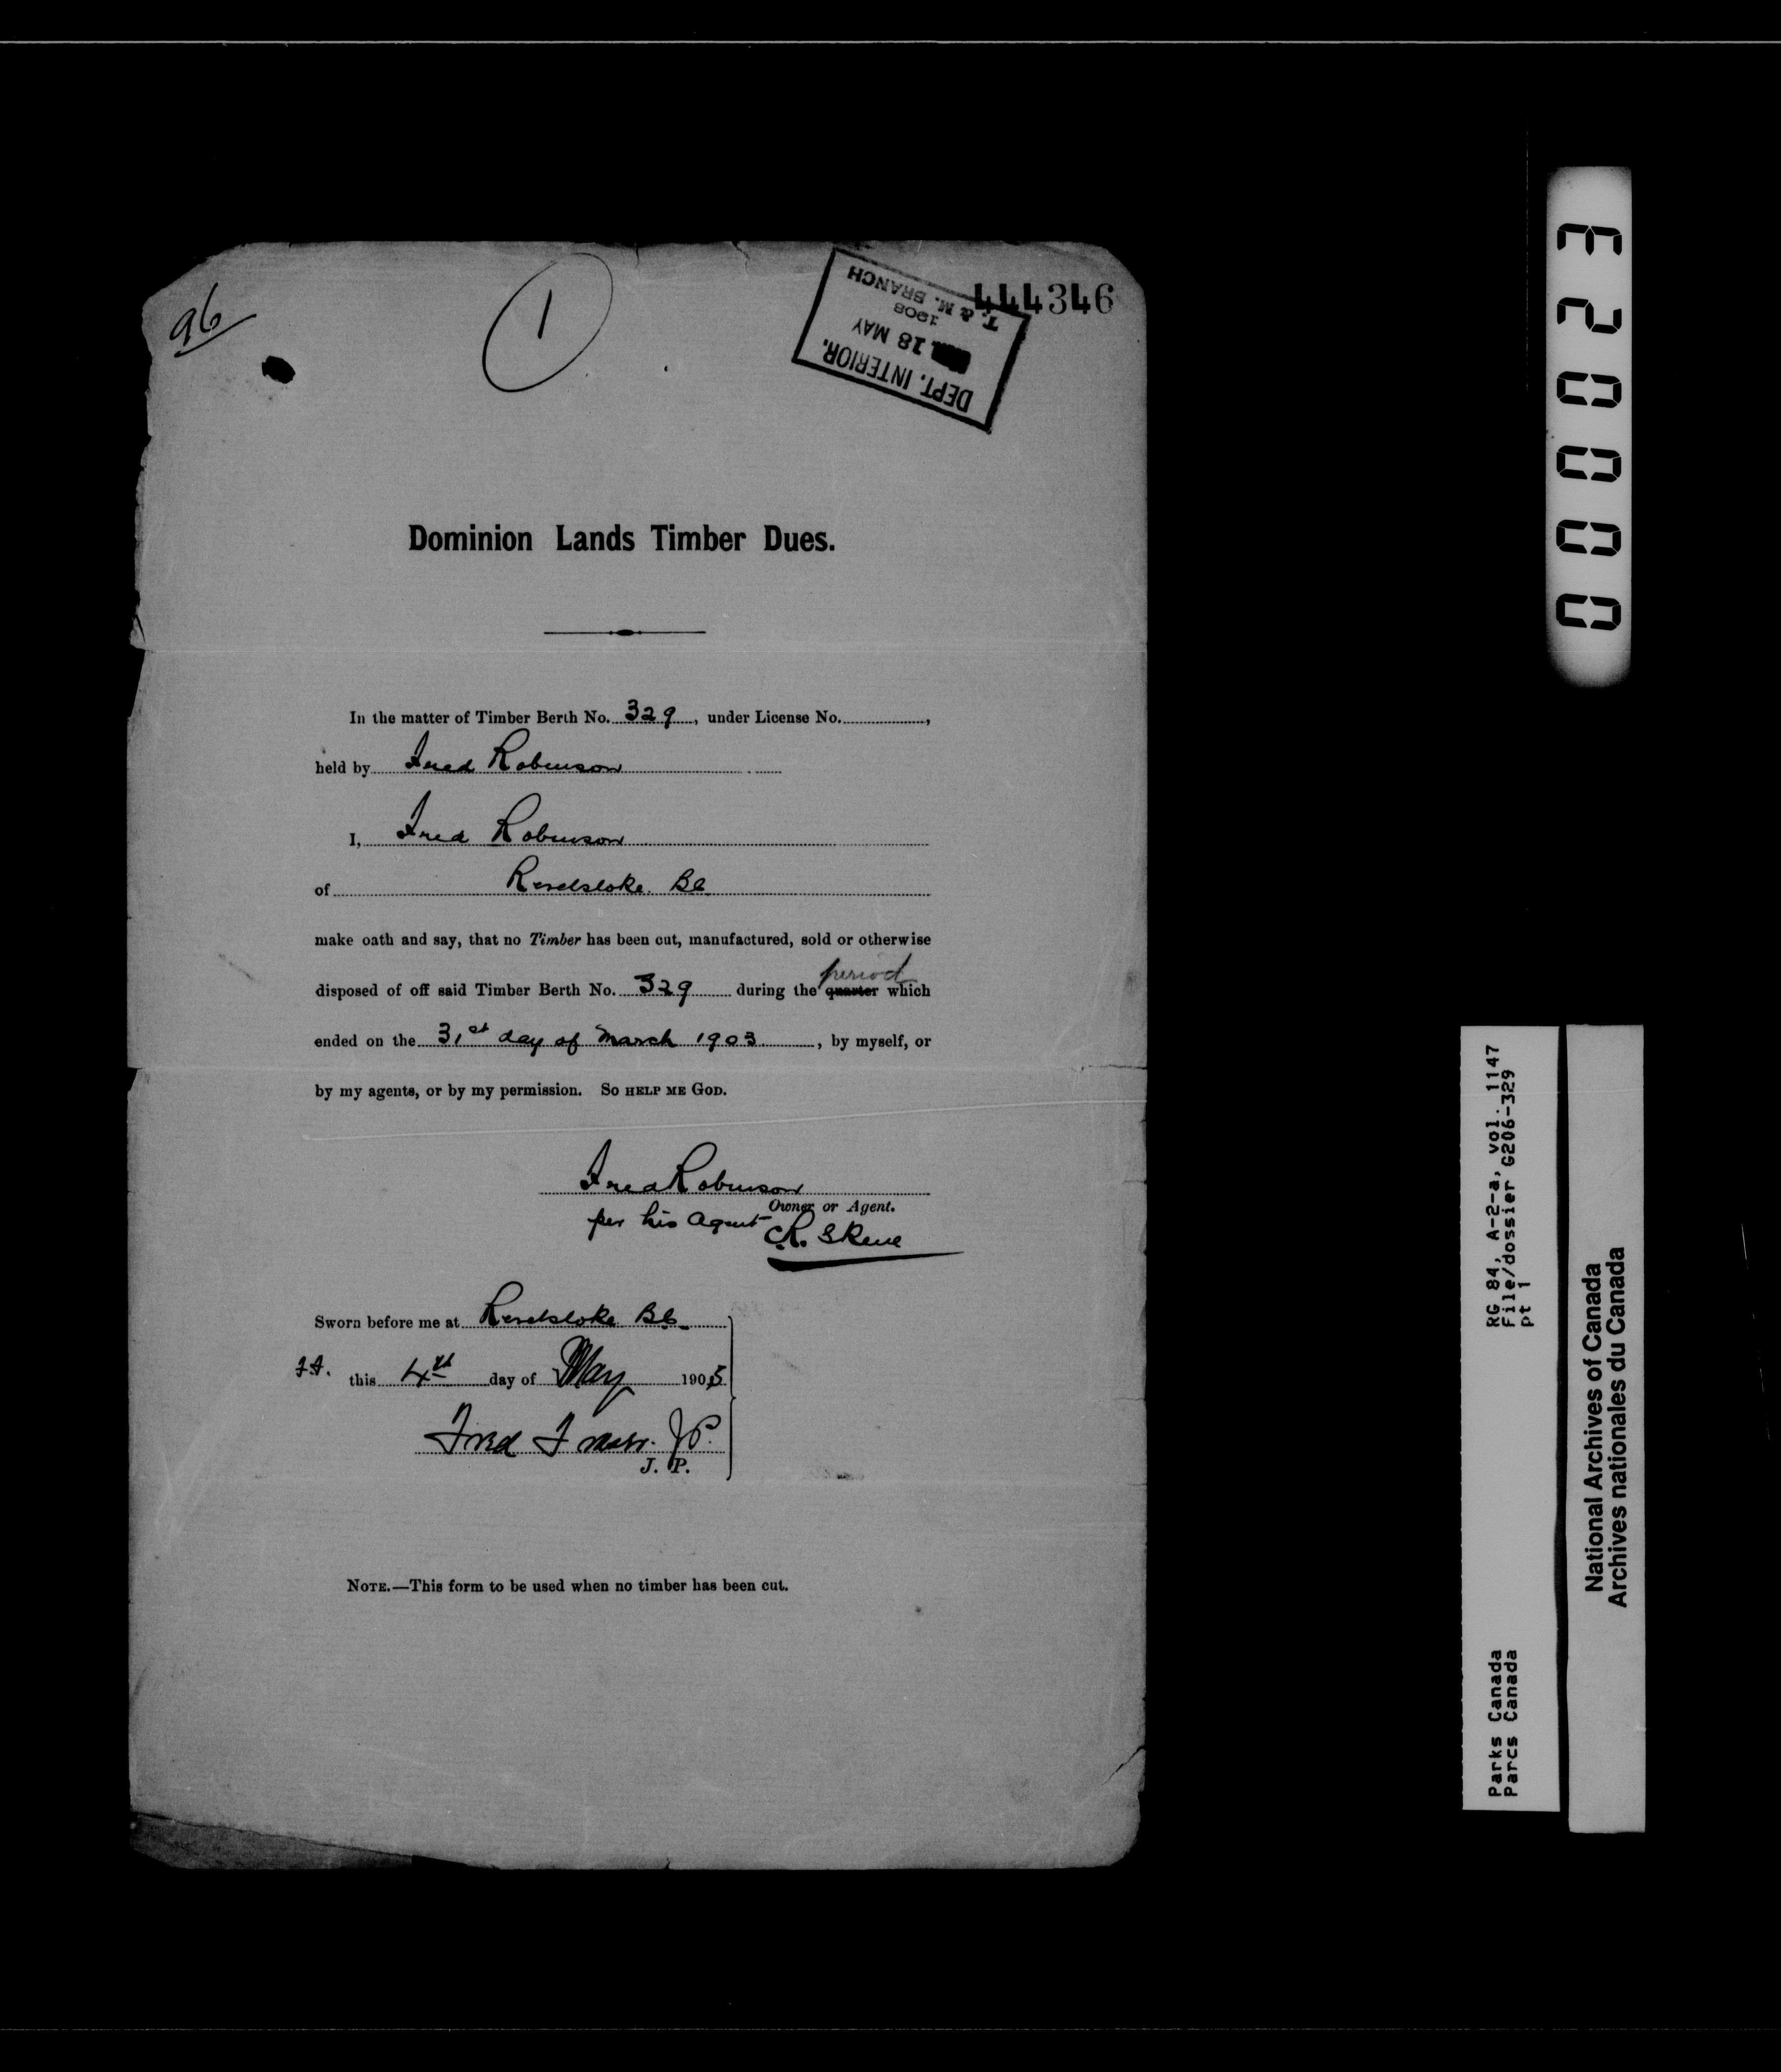 96
1
444346
DEPT. INTERIOR.
18 MAY
1908
T. & M. BRANCH
Dominion Lands Timber Dues.
In the matter of Timber Berth No. 329, under License No.
held by Fred Robinson
I, Fred Robinson
of Revelstoke. BC
make oath and say, that no Timber has been cut, manufactured, sold or otherwise
period
disposed of off said Timber Berth No. 329 during the quarter which
ended on the 31st day of March 1903, by myself, or
by my agents, or by my permission. SO HELP ME GOD.
Fred Robinson
Owner or Agent.
per his Agent C.R. Skene
Sworn before me at Revelstoke BC
F.F. this 4th day of May 1905
Fred Fraser. JP.
J. P.
NOTE.—This form to be used when no timber has been cut.
000023
RG 84, A-2-a, vol. 1147
File/dossier G206-329
pt 1
Parks Canada
Parcs Canada
National Archives of Canada
Archives nationales du Canada